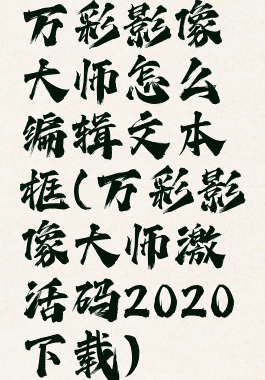 万彩影像
大师怎么
编辑文本
框(万彩影
像大师激
活码2020
下载)